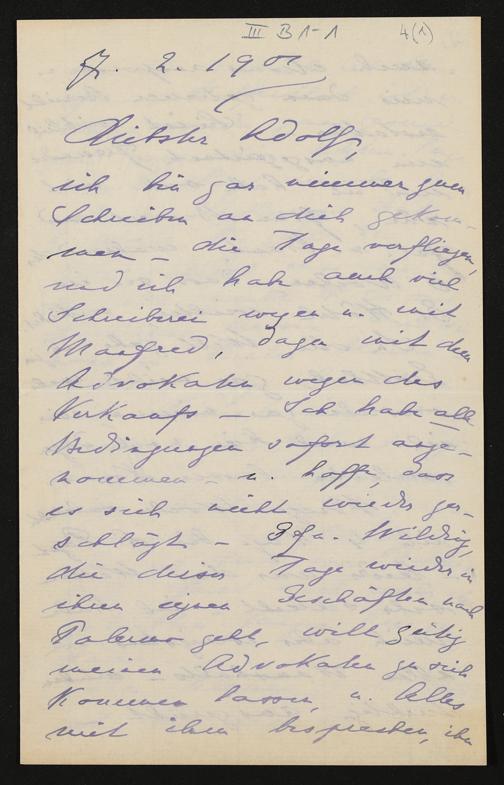 III B 1-1 4(1)
7. 2. 1901
Liebster Adolf,
ich bin gar nimmer zum
Schreiben an dich gekom-
men – die Tage verfliegen,
und ich habe auch viel
Schreiberei wegen u. mit
Manfred, dazu mit dem
Advokaten wegen des
Verkaufs – Ich habe alle
Bedingungen sofort ange-
nommen – u. hoffe, dass
es sich nicht wieder zer-
schlägt – Wilding,
die dieser Tage wieder in
ihren eigenen Geschäften nach
Palermo geht, will gütig
meinen Advokaten zu sich
kommen lassen, u. Alles
mit ihm besprechen, ihn